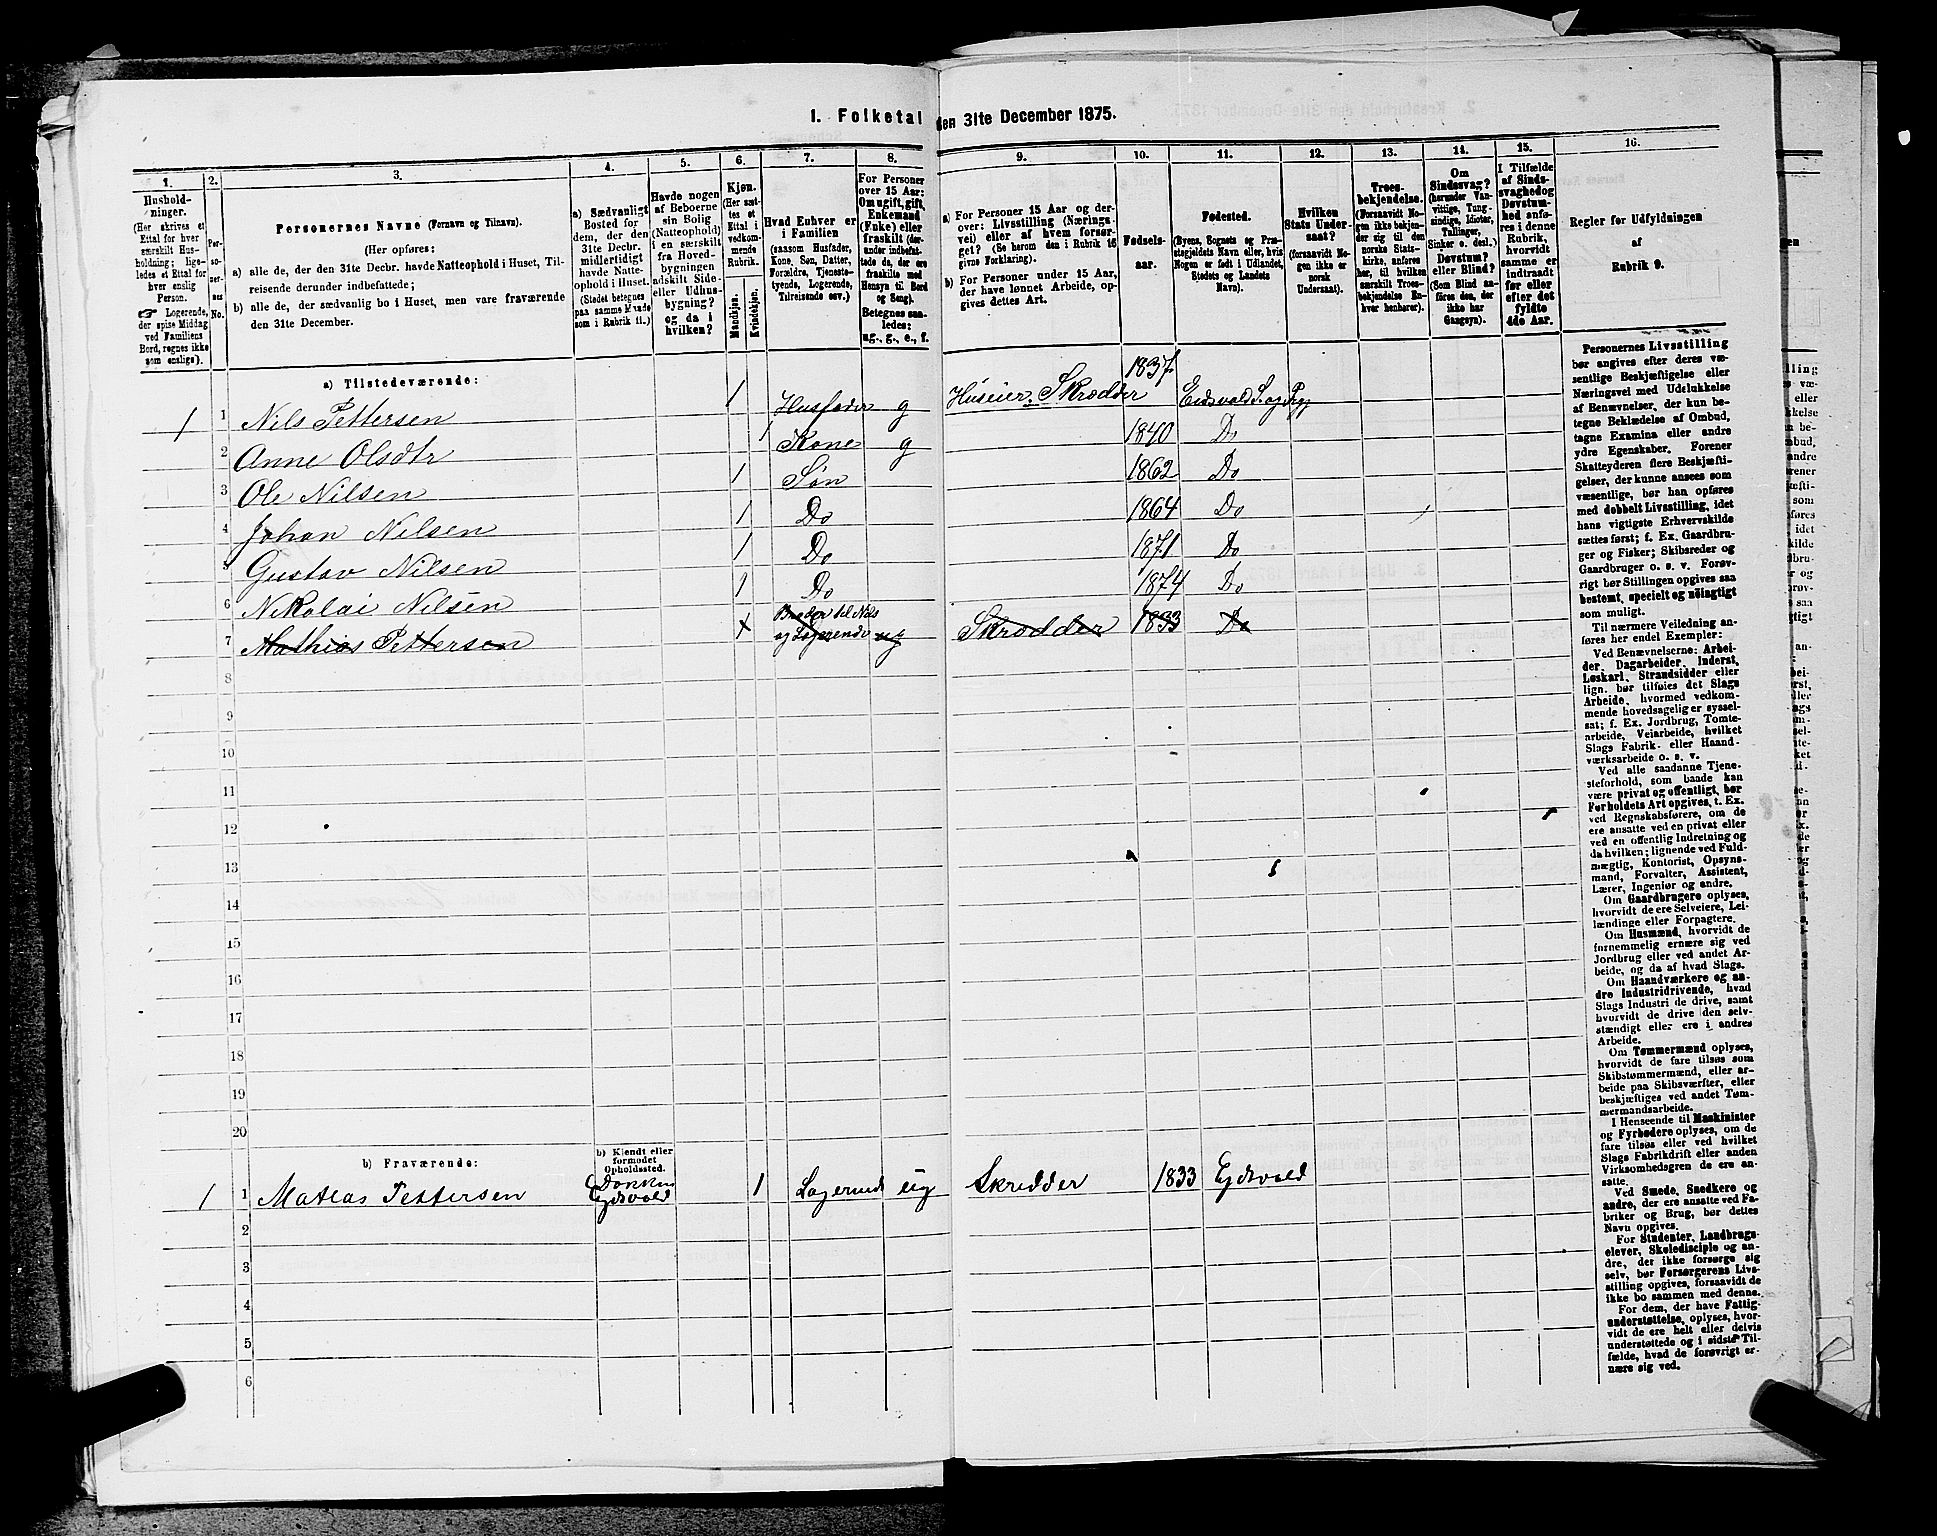 1. Folketal den 31te December 1875.
1. 2. 3. 4. 5. 6. 7. 8. 9. 10. 11. 12. 13. 14. 15. 16.
Hushold-
ninger.
(Her skrives et
Ettal for hver
særskilt Hus-
holdning; lige-
ledes et Ettal for
hver enslig
Person.
☞ Logerende,
der spise Middag
ved Familiens
Bord, regnes ikke
som enslige).
Per-
so-
ner-
nes
No.
Personernes Navne (Fornavn og Tilnavn).
(Her opføres:
a) alle de, der den 31te Decbr. havde Natteophold i Huset, Til-
reisende derunder indbefattede;
b) alle de, der sædvanlig bo i Huset, men vare fraværende
den 31te December.
a) Sædvanligt
Bosted for
dem, der den
31te Decbr.
midlertidigt
havde Natte-
ophold i Huset.
(Stedet betegnes
paa samme Maade
som i Rubrik 11.)
Havde nogen
af Beboerne
sin Bolig
(Natteophold)
i en særskilt
fra Hoved-
bygningen
adskilt Side-
eller Udhus-
bygning?
og da i
hvilken?
Kjøn.
(Her sæt-
tes et
Ettal i
vedkom-
mende
Rubrik.
Mandkjøn.
Kvindekjøn.
Hvad Enhver er
i Familien
(saasom Husfader,
Kone, Søn, Datter,
Forældre, Tjeneste-
tyende, Logerende,
Tilreisende osv.)
For Personer
over 15 Aar:
Om ugift, gift,
Enkemand
(Enke) eller
fraskilt (der-
under indbefat-
tede de, der ere
fraskilte med
Hensyn til Bord
og Seng).
Betegnes saa-
ledes:
ug., g., e., f.
a) For Personer 15 Aar og der-
over: Livsstilling (Nærings-
vei) eller af hvem forsør-
get? (Se herom den i Rubrik 16
givne Forklaring).
b) For Personer under 15 Aar,
der have lønnet Arbeide, op-
gives dettes Art.
Fødsels-
aar.
Fødested.
(Byens, Sognets og Præ-
stegjeldets Navn eller, hvis
Nogen er født i Udlandet,
Stedets og Landets
Navn).
Hvilken
Stats Under-
saat?
(forsaavidt No-
gen ikke er
norsk
Undersaat).
Troes-
bekjendelse.
(Forsaavidt No-
gen ikke bekjen-
der sig til den
norske Stats-
kirke, anføres
her, til hvilken
særskilt Troes-
bekjendelse En-
hver henhører).
Om
Sindssvag?
(herunder Van-
vittige, Tung-
sindige, Idioter,
Tullinger,
Sinker o. desl.)
Døvstum?
eller Blind?
(Som Blind an-
føres den, der
ikke har
Gangsyn).
I Tilfælde
af Sinds-
svaghed og
Døvstum-
hed anfø-
res i denne
Rubrik,
hvorvidt
samme er
indtraadt
før eller
efter det
fyldte
4de Aar.
Regler for Udfyldningen
af
Rubrik 9.
a) Tilstedeværende:
1 1 Nils Pettersen 1 Husfader g Huseier, Skrædder 1837 Eidsvold S. og Prg
2 Anne Olsdtr 1 Kone g 1840 Do
3 Ole Nilsen 1 Søn 1862 Do
4 Johan Nilsen 1 Do 1864 Do
5 Gustav Nilsen 1 Do 1871 Do
6 Nikolai Nilsen 1 Do 1874 Do
7 Mathias Pettersen Broder til Nils
og Logerende ug Skrædder 1833 Do
8
9
10
11
12
13
14
15
16
17
18
19
20
b) Fraværende:
b) Kjendt eller
formodet
Opholdssted.
1 1 Matias Pettersen
Eydsvold 1 Logerend ug Skredder 1833 Eydsvold
2
3
4
5
6
Personernes Livsstilling
bør angives efter deres væ-
sentlige Beskjæftigelse eller
Næringsvei med Udelukkelse
af Benævnelser, der kun be-
tegne Beklædelse af Ombud,
tagne Examina eller andre
ydre Egenskaber. Forener
Skatteyderen flere Beskjæfti-
gelser, der kunne ansees som
væsentlige, bør han opføres
med dobbelt Livsstilling, idet
hans vigtigste Erhvervskilde
sættes først; f. Ex. Gaardbru-
ger og Fisker; Skibsreder og
Gaardbruger o. s. v. Forøv-
rigt bør Stillingen opgives saa
bestemt, specielt og nøiagtigt
som muligt.
Til nærmere Veiledning an-
føres her endel Exempler:
Ved Benævnelserne: Arbei-
der, Dagarbeider, Inderst,
Løskarl, Strandsidder eller
lign. bør tilføies det Slags
Arbeide, hvormed vedkom-
mende hovedsagelig er syssel-
sat; f. Ex. Jordbrug, Tomte-
arbeide, Veiarbeide, hvilket
Slags Fabrik- eller Haand-
værksarbeide o. s. v.
Ved alle saadanne Tjene-
steforhold, som baade kan
være privat og offentligt, bør
Forholdets Art opgives, t. Ex.
ved Regnskabsførere, om de
ere ansatte ved en privat eller
ved en offentlig Indretning og
da hvilken; lignende ved Fuld-
mægtig, Kontorist, Opsyns-
mand, Forvalter, Assistent,
Lærer, Ingeniør og andre.
Om Gaardbrugere oplyses,
hvorvidt de ere Selveiere, Lei-
lændinge eller Forpagtere.
Om Husmænd, hvorvidt de
fornemmelig ernære sig ved
Jordbrug eller ved andet Ar-
beide, og da af hvad Slags.
Om Haandværkere og an-
dre Industridrivende, hvad
Slags Industri de drive, samt
hvorvidt de drive den selv-
stændigt eller ere i andres
Arbeide.
Om Tømmermænd oplyses,
hvorvidt de fare tilsøs som
Skibstømmermænd, eller ar-
beide paa Skibsværfter, eller
beskjæftiges ved andet Tøm-
mermandsarbeide.
I Henseende til Maskinister
og Fyrbødere oplyses, om de
fare tilsøs eller ved hvilket
Slags Fabrikdrift eller anden
Virksomhedsgren de ere an-
satte.
Ved Smede, Snedkere og
andre, der ere ansatte ved Fa-
briker og Brug, bør dettes
Navn opgives.
For Studenter, Landbrugs-
elever, Skoledisciple og an-
dre, der ikke forsørge sig
selv, bør Forsørgerens Livs-
stilling opgives, forsaavidt de
ikke bo sammen med denne.
For dem, der have Fattig-
understøttelse, oplyses, hvor-
vidt de ere helt eller delvis
understøttede og i sidste Til-
fælde, hvad de forøvrigt er-
nære sig ved.